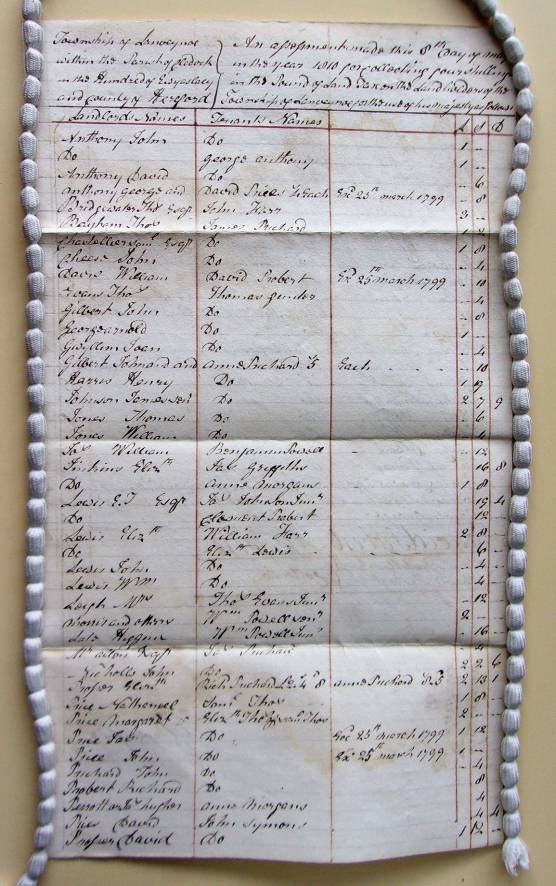 Township of Lanveynoe An assessment made this 8th Day of
within the Parish of Clodock in the year 1810 for collecting four shillings
in the Hundred of Ewyaslacy in the Pound of Land Tax on the Landholders of the
and County of Hereford Township of Lanveynoe for the use of his majesty as follows
Landlords Names Tenants Names £ S D
Anthony John Do 1 -
Do George Anthony 1 -
Anthony David Do - 6
Anthony George and David Price Each Ex 25th march 1799 - 8
Bridgwater Thos Esqr John Farr 3 -
Thos James Prichard
Esqr Do 1 8
Cheese John Do - 4
Davis William David Probert Ex 25th march 1799 - 10
Evans Thos Thomas - 4
Gilbert John Do - 8
George Arnold Do 1 -
Gwyllim Joan Do - 4
Gilbert John and Anne Prichard 5 Each - 10
Harris Henry Do 1
Johnson James senr Do 2 7 9
Jones Thomas Do - 6
Jones William Do - 4
William Benjamin Powell - 12
Jinkins Elizth Jas Griffiths 16 8
Do Anne Morgans 1 8
Lewis E.J Esqr Jas Johnson Junr 4
Do Clement Probert 12 -
Lewis Elizth William Farr 2 8
Do Elizth Lewis 6 -
Lewis John Do - 4
Lewis Wm Do - 4
Leigh Mrs Thos Evans Junr - 12
Morris and others Wm Powell senr 2 -
Late Higgins Wm Powell Junr - 16
Esqr Jas Prichard - 4
Nicholls John Do 2 2 6
Prosser Elizth Richd Prichard £2. 4s 8 Anne Prichard 8.5 2 13 1
Price Nathaniel Saml 1 8
Price Margaret Elizth Thos 2 -
Price Jas Do Ex 25th march 1799 1 12
Price John Do Ex 25th march 1799 1 -
Prichard John Do - 4
Probert Richard Do 8
Perrott or Hughes Anne Morgans 4
Price David John Symons 4 4
Prosser David Do 1 12 -